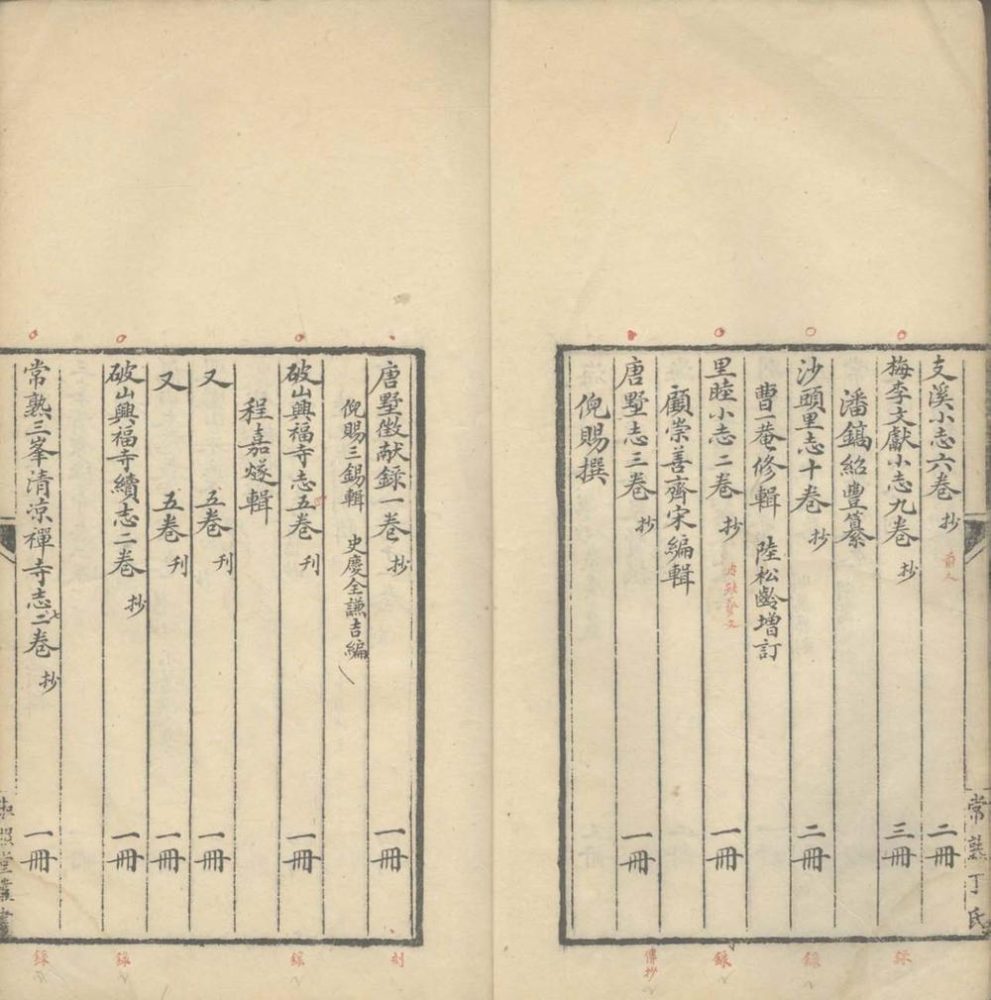 支溪小志六卷 抄 二冊
梅李文獻小志九卷 抄 三冊
潘鎬紹豐纂
沙頭里志十卷 抄 二冊
曹一菴修輯 陸松齡增訂
里睦小志二卷 抄 一冊
顧崇善齊宋編輯
唐墅志三卷 抄 一冊
倪賜撰
常熟丁氏
錄
錄
錄
傳抄
唐墅徵献録一卷 抄 一冊
倪賜三錫輯 史慶全謙吉編
破山興福寺志五卷 刊 一冊
程嘉燧輯
又 五卷 刊 一冊
又 五卷 刊 一冊
破山興福寺續志二卷 抄 一冊
常熟三峯清凉禪寺志二卷 抄 一冊
刻
錄
錄
錄